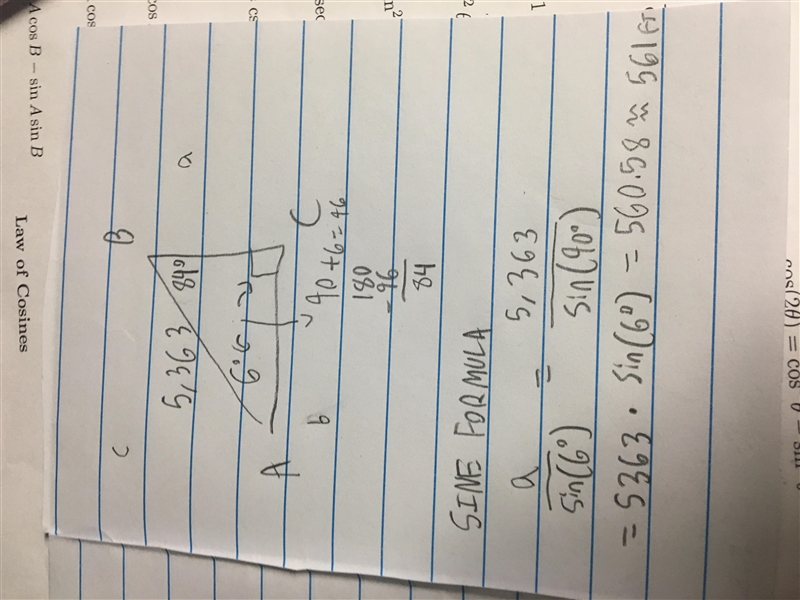 c
B
a
84°
5,363
6°
A
b
C
90+6=96
180
- 96
84
SINE FORMULA
a = 5,363
sin(6°) sin(90°)
= 5363 · sin(6°) = 560.58 ≈ 561 ft
A cos B − sin A sin B
Law of Cosines